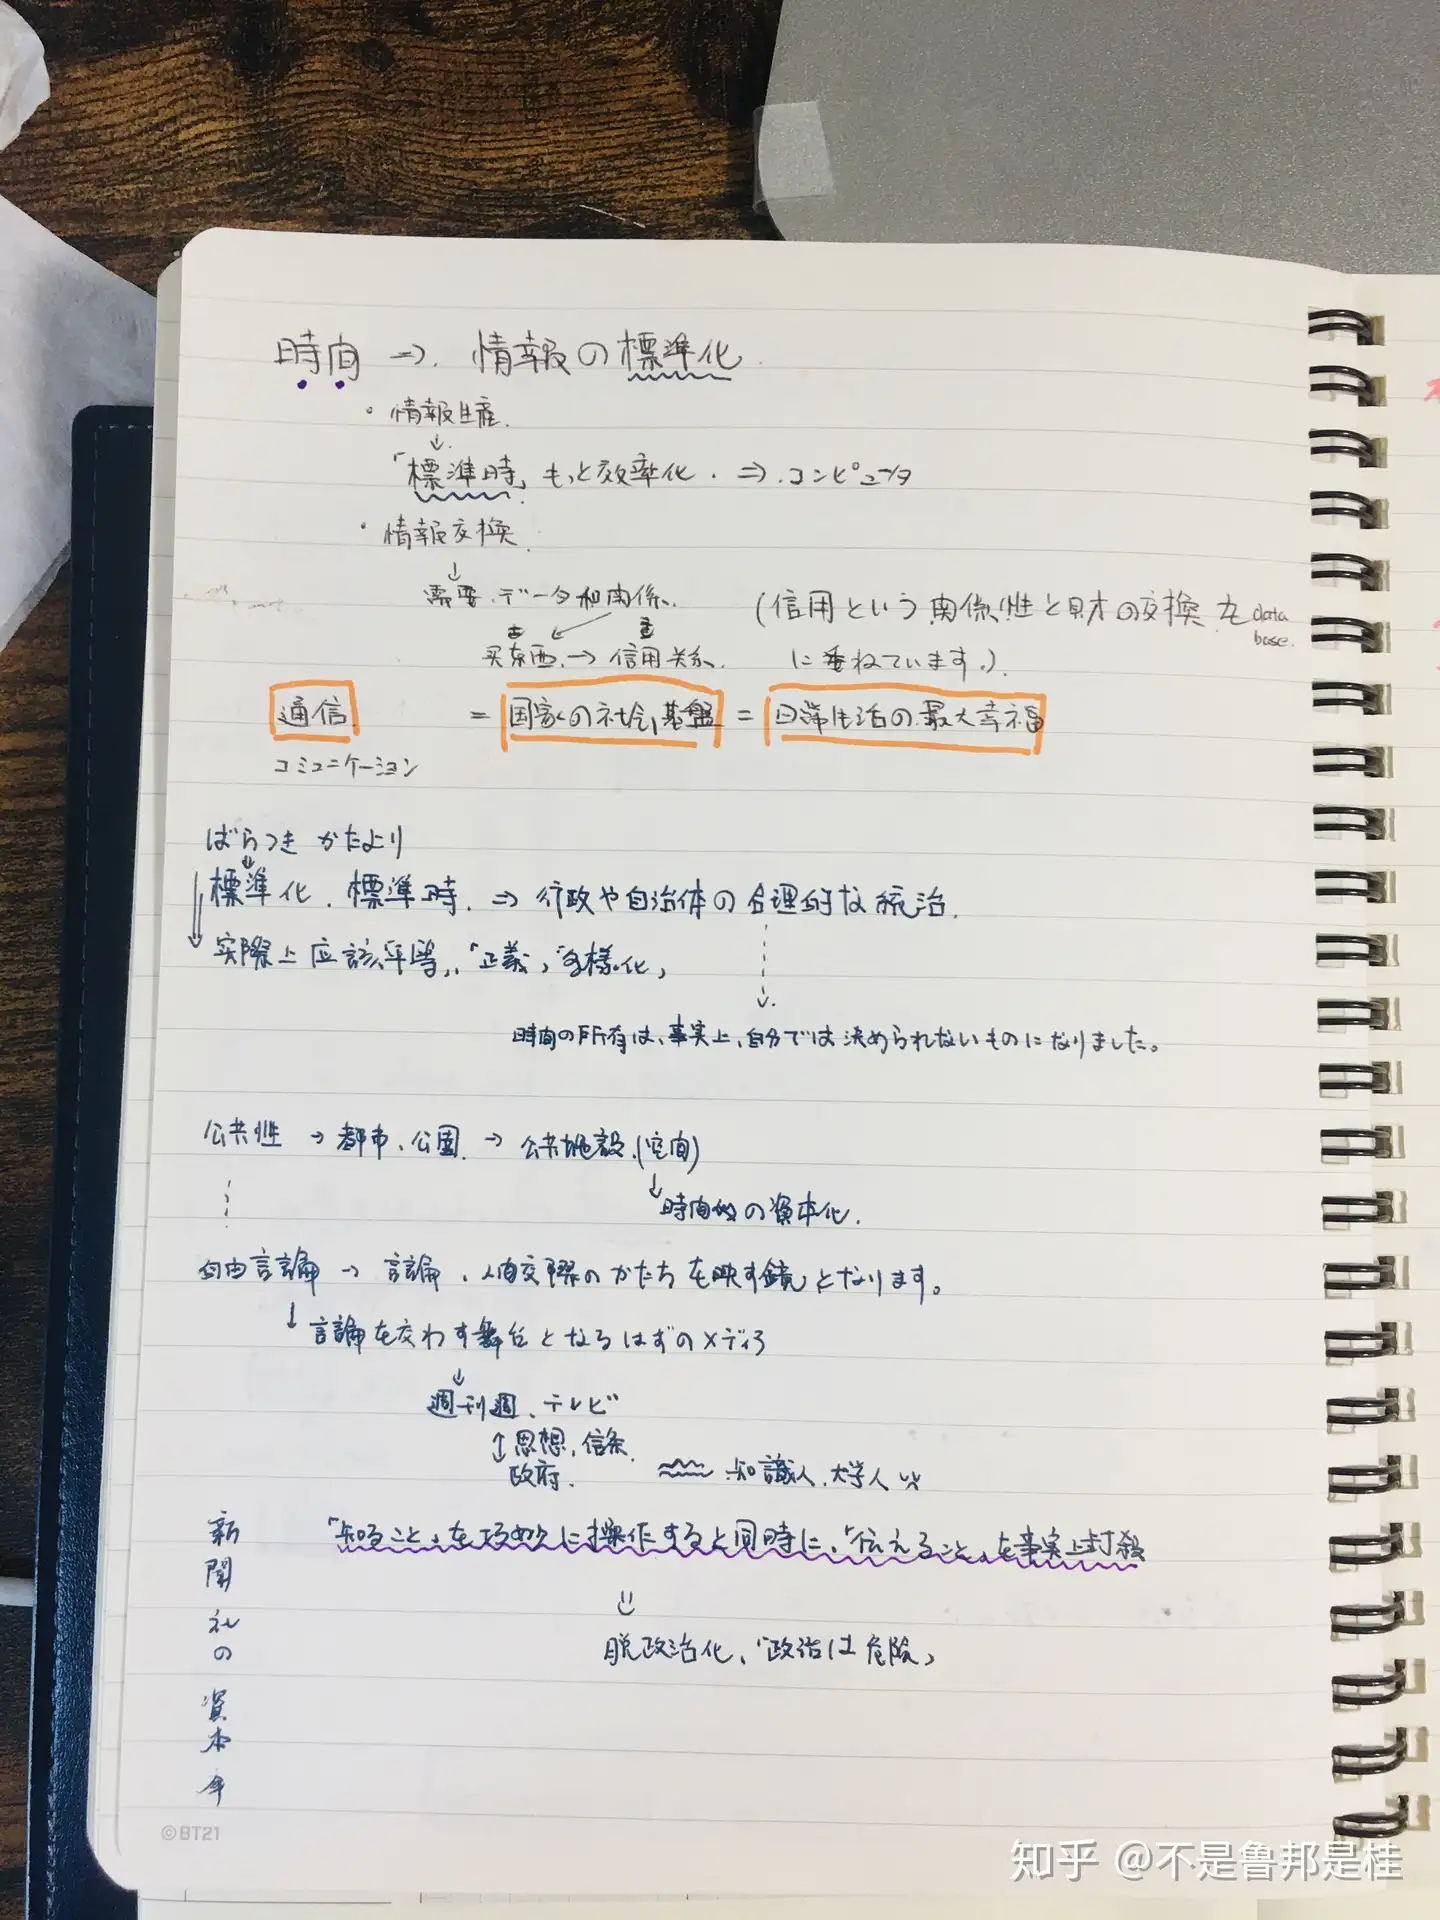 時间 ⇒. 情報の標準化.
・情報生産.
↓.
「標準時」もっと効率化. ⇒.コンピュータ
・情報交換.
↓
需要.データ和関係.
买东西.→ 信用关系.
(信用という関係性と財の交換を data base.
に重ねています。)
通信 = 国家の社会基盤 = 日常生活の最大幸福
コミュニケーション
ばらつき かたより
↓
標準化. 標準時. ⇒ 行政や自治体の合理的な統治.
実際上 应該平等,「正義」多様化,
時间の所有は、事実上、自分では決められないものになりました。
公共性 → 都市、公園. → 公共施設.(空间)
↓時间 の資本化.
自由言論 → 言論、人间交際のかたちを映す鏡となります。
↓言論を交わす舞台となるはずのメディア
↓
週刊週、テレビ
↕思想,信条.
政府.
知識人.大学人
「知ること」を巧妙に操作すると同時に、「伝えること」を事実上封殺
⇓
脱政治化、「政治は危険」
新聞社の資本
©BT21
知乎 @不是鲁邦是桂